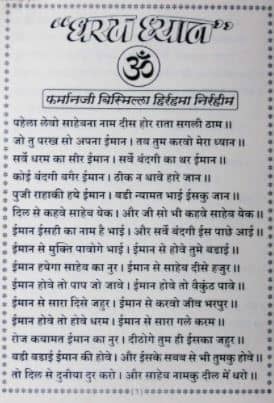 “धरम ध्यान”
ॐ
फर्मानजी बिस्मिल्ला हिर्रहमा निर्रहीम
पहेला लेवो साहेबना नाम दीस होर राता सगली ठाम॥
जो तु परख सो अपना ईमान। तब तुम करवो मेरा ध्यान॥
सर्वे धरम का सीर ईमान। सर्वे बंदगी का थर ईमान॥
कोई बंदगी बगैर ईमान। ठीक न थावे हारे जान॥
पुजी राहाकी हये ईमान। बडी न्यामत भाई ईसकु जान॥
दिल से कहवे साहेब येक। और जी सो भी कहवे साहेब येक॥
ईमान ईसही का नाम है भाई। और सर्वे बंदगी ईस पाछे आई॥
ईमान से मुक्ति पावोगे भाई। ईमान से होवे तुमे बडाई॥
ईमान हयेगा साहेब का नुर। ईमान से साहेब दीसे हजुर॥
ईमान होवे तो पाप जो जावे। ईमान होवे तो वैकुंठ पावे॥
ईमान से सारा दिसे जहुर। ईमान से करवो जीव भरपुर॥
ईमान होवे तो होवे धरम। ईमान से सारा गले करम॥
रोज कयामत ईमान का नुर। दीठोगे तुम ही ईसका जहुर॥
बडी बडाई ईमान की होवे। और ईसके सबब से भी तुमकु होवे॥
तो दिल से दुनीया दुर करो। और साहेब नामकु दील में धरो॥